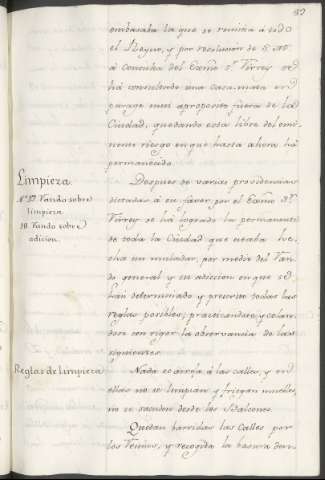 embasaba la que se remitia à todo
el Reyno, y por resolucion de S. M.
à consulta del Exmo Sr. Virrey se
há construido una casa-mata en
parage mui aproposito fuera de la
Ciudad, quedando esta libre del emi-
nente riesgo en que hasta ahora há
permanecido.
Limpieza
Nº 17 Vando sobre
limpieza
18 Vando sobre
adicion.
Despues de varias providencias
dictadas à su favor, por el Exmo Sr.
Virrey se há logrado la permanente
de toda la Ciudad que estaba he-
cha un muladar, por medio del Van-
do general y su adiccion en que se
han determinado y prescrito todas las
reglas posibles, practicandose y celan-
dose con rigor la observancia de las
siguientes.
Reglas de limpieza
Nada se arroja à las calles, y en
ellas no se limpian y friegan muebles,
ni se sacuden desde los Balcones.
Quedan barridas las Calles por
los Vecinos, y recogida la basura den-